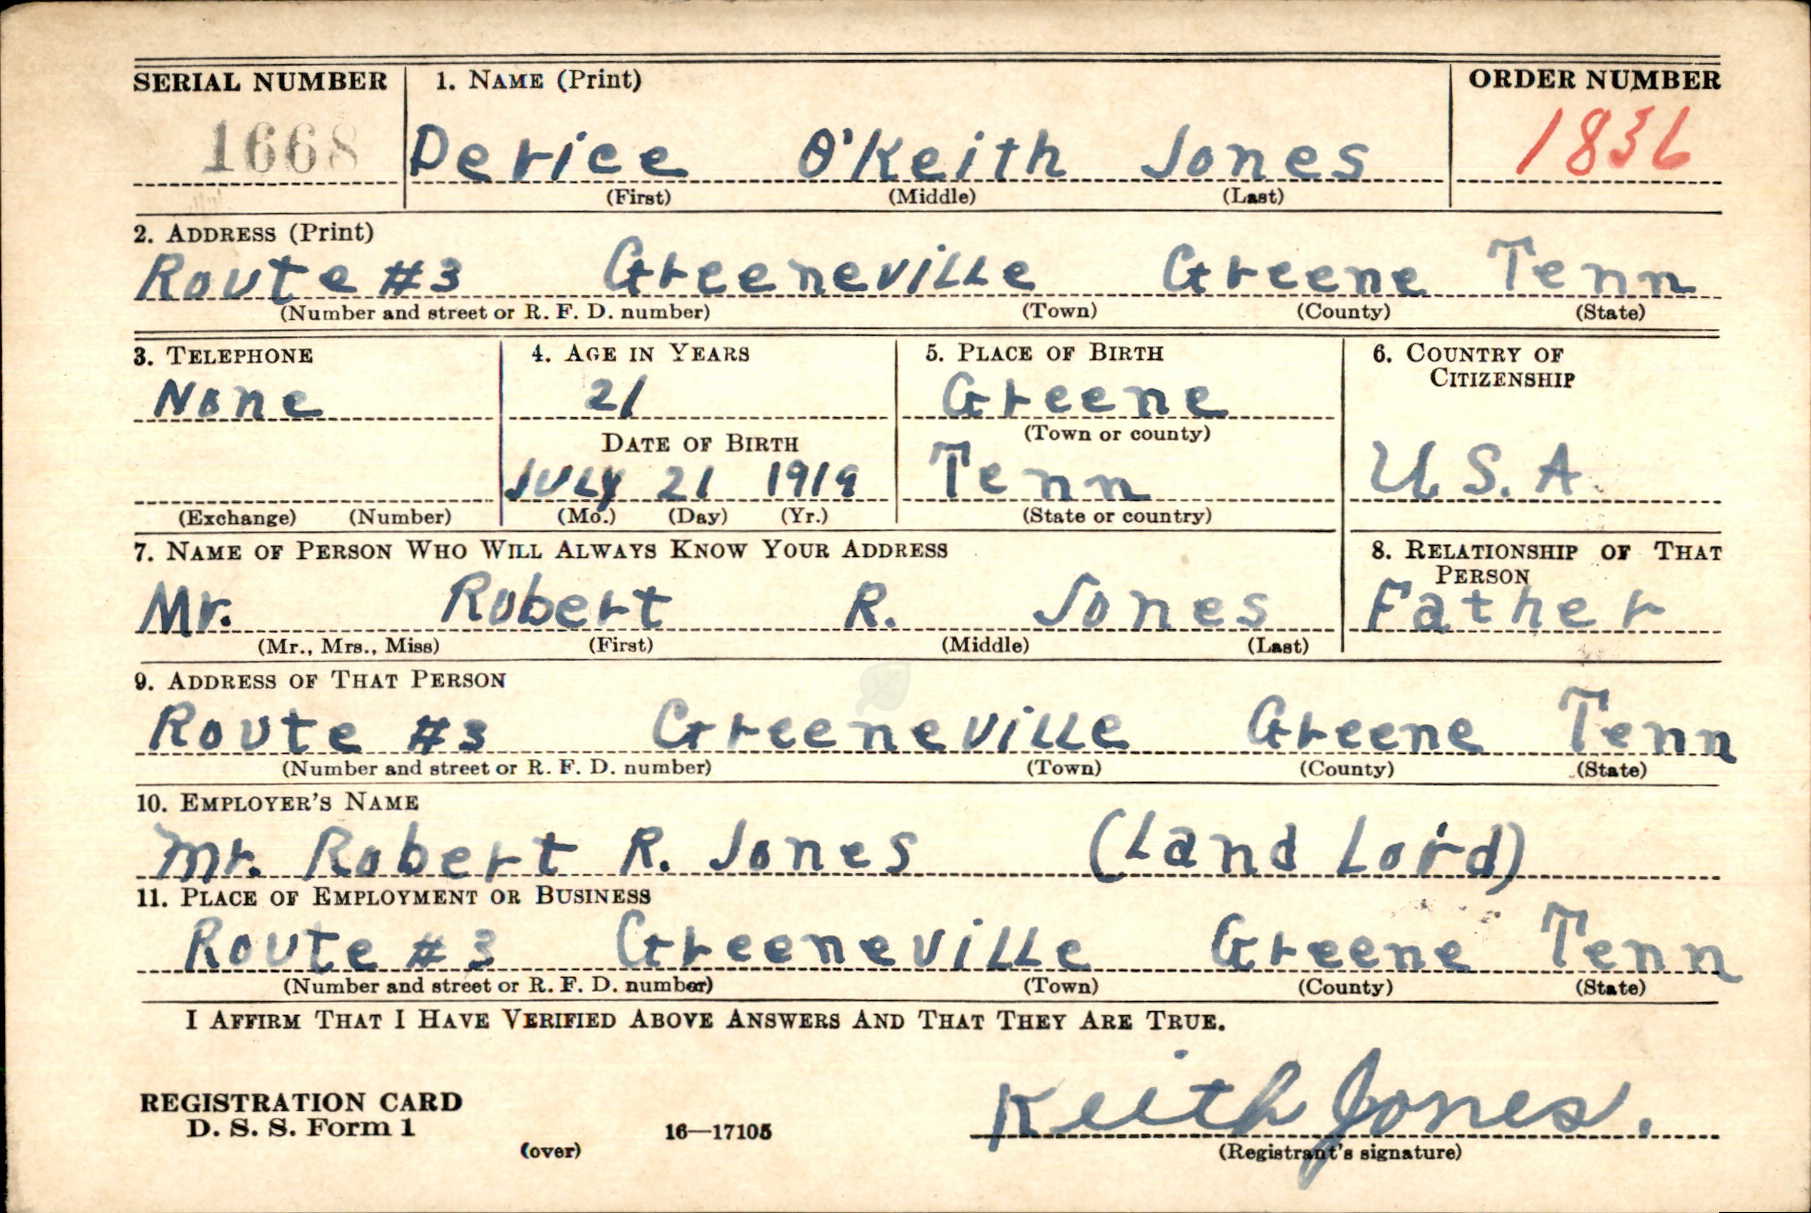 SERIAL NUMBER 1. NAME (Print) ORDER NUMBER
1668 Derice O'Keith Jones 1836
(First) (Middle) (Last)
2. ADDRESS (Print)
Route #3 Greeneville Greene Tenn
(Number and street or R. F. D. number) (Town) (County) (State)
3. TELEPHONE 4. AGE IN YEARS 5. PLACE OF BIRTH 6. COUNTRY OF CITIZENSHIP
None 21 Greene
DATE OF BIRTH (Town or county)
July 21 1919 Tenn U.S.A.
(Exchange) (Number) (Mo.) (Day) (Yr.) (State or country)
7. NAME OF PERSON WHO WILL ALWAYS KNOW YOUR ADDRESS 8. RELATIONSHIP OF THAT PERSON
Mr. Robert R. Jones Father
(Mr., Mrs., Miss) (First) (Middle) (Last)
9. ADDRESS OF THAT PERSON
Route #3 Greeneville Greene Tenn
(Number and street or R. F. D. number) (Town) (County) (State)
10. EMPLOYER'S NAME
Mr. Robert R. Jones (Land Lord)
11. PLACE OF EMPLOYMENT OR BUSINESS
Route #3 Greeneville Greene Tenn
(Number and street or R. F. D. number) (Town) (County) (State)
I AFFIRM THAT I HAVE VERIFIED ABOVE ANSWERS AND THAT THEY ARE TRUE.
REGISTRATION CARD Keith Jones.
D. S. S. Form 1 16—17105
(over) (Registrant's signature)